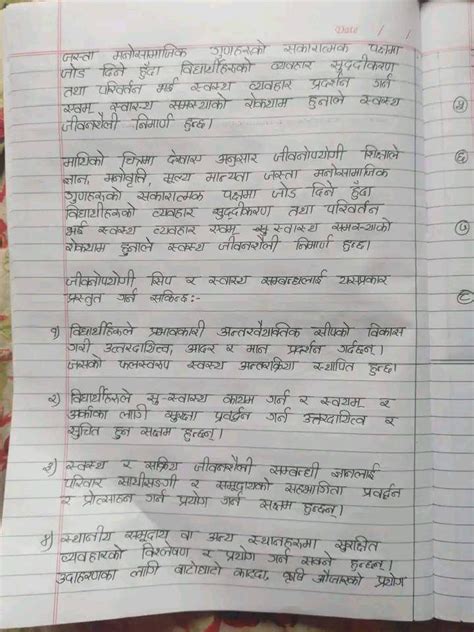 Date / /
जस्ता मनोसामाजिक गुणहरुको सकारात्मक पक्षमा
जोड दिने हुँदा विद्यार्थीहरुको व्यवहार सुदृढीकरण
तथा परिवर्तन भई स्वस्थ व्यवहार प्रदर्शन गर्न
एवम् स्वास्थ्य समस्याको रोकथाम हुनाले स्वस्थ
जीवनशैली निर्माण हुन्छ।
माथिको चित्रमा देखाए अनुसार जीवनोपयोगी शिक्षाले
ज्ञान, मनोवृत्ति, मूल्य मान्यता जस्ता मनोसामाजिक
गुणहरुको सकारात्मक पक्षमा जोड दिने हुँदा
विद्यार्थीहरुको व्यवहार सुदृढीकरण तथा परिवर्तन
भई स्वस्थ व्यवहार एवम् स्वास्थ्य समस्याको
रोकथाम हुनाले स्वस्थ जीवनशैली निर्माण हुन्छ।
जीवनोपयोगी सिप र स्वास्थ्य सम्बन्धलाई यसप्रकार
प्रस्तुत गर्न सकिन्छ:-
१) विद्यार्थीहरुले प्रभावकारी अन्तरवैयक्तिक सीपको विकास
गरी उत्तरदायित्व, आदर र मान प्रदर्शन गर्दछन्।
जसको फलस्वरुप स्वस्थ अन्तरक्रिया स्थापित हुन्छ।
२) विद्यार्थीहरुले सु-स्वास्थ्य कायम गर्न र स्वयम् र
अर्काका लागी सुरक्षा प्रवर्द्धन गर्न उत्तरदायित्व र
सुचित हुन सक्षम हुन्छन्।
३) स्वस्थ र सक्रिय जीवनशैली सम्बन्धी ज्ञानलाई
परिवार साथीसङ्गी र समुदायको सहभागिता प्रवर्द्धन
र प्रोत्साहन गर्न प्रयोग गर्न सक्षम हुन्छन्।
४) स्थानीय समुदाय वा अन्य स्थानहरुमा सुरक्षित
व्यवहारको विश्लेषण र प्रयोग गर्न सक्ने हुन्छन्।
उदाहरणका लागि बाटोघाटो काट्दा, कृषि औजारको प्रयोग